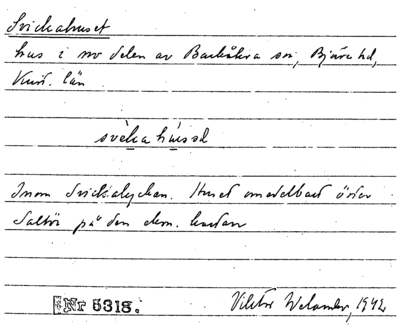 Svickahuset
hus i nv delen av Barkåkra sn, Bjäre hd,
Krist. län
svèka hùssd
Inom Svickalyckan. Huset omedelbart öster
Saltör på den ekon. kartan
Nr 5318.
Viktor Welander, 1942